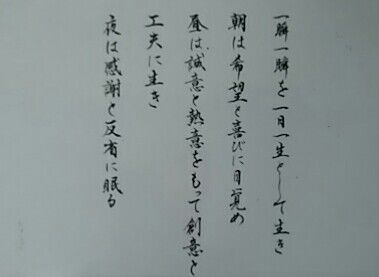 一瞬一瞬を一日一生として生き
朝は希望と喜びに目覚め
昼は、誠意と熱意をもって創意と
工夫に生き
夜は感謝と反省に眠る